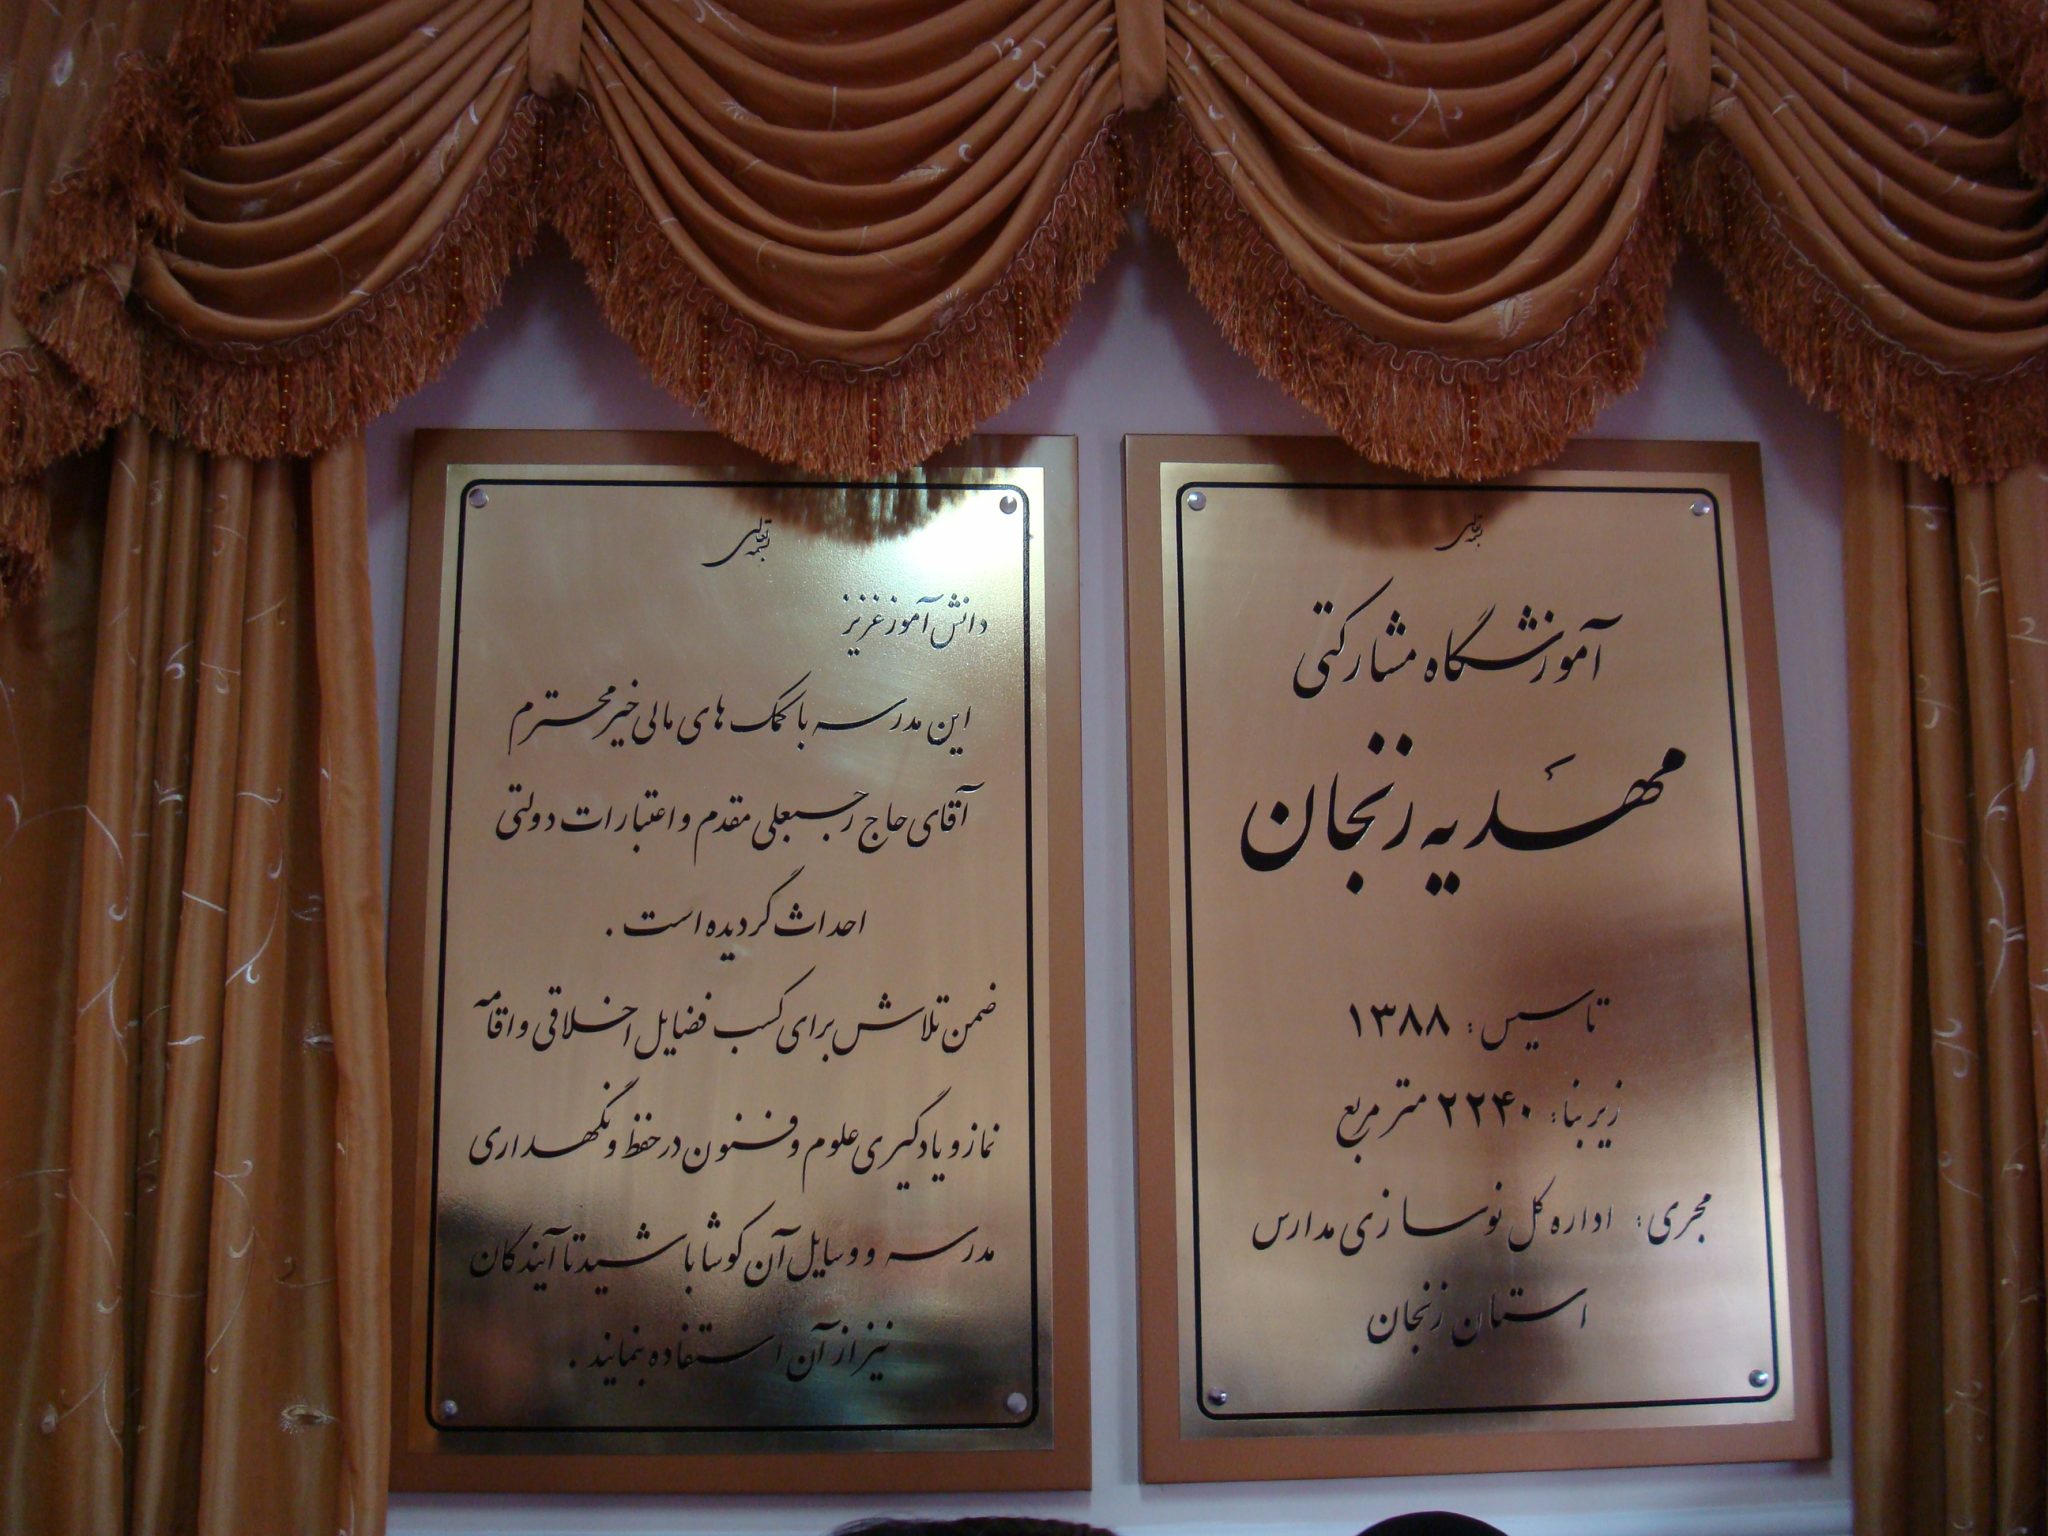 بسمه تعالی
آموزشگاه مشارکتی
مهدیه زنجان
تاسیس : ۱۳۸۸
زیر بنا : ۲۲۴۰ متر مربع
مجری : اداره کل نوسازی مدارس
استان زنجان
بسمه تعالی
دانش آموز عزیز
این مدرسه با کمک های مالی خیر محترم
آقای حاج رجبعلی مقدم و اعتبارات دولتی
احداث گردیده است .
ضمن تلاش برای کسب فضایل اخلاقی و اقامه
نماز و یادگیری علوم و فنون در حفظ و نگهداری
مدرسه و وسایل آن کوشا باشید تا آیندگان
نیز از آن استفاده بنمایند .